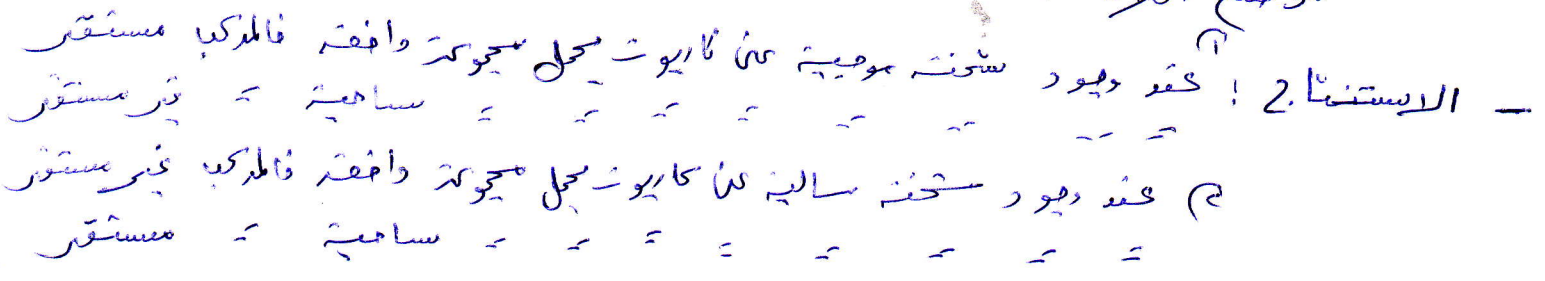 – الاستنتاج : ١) عند وجود شحنة موجبة على كاربون يحمل مجموعة دافعة فالمركب مستقر
= = = = = = = = ساحبة = غير مستقر
٢) عند وجود شحنة سالبة على كاربون يحمل مجموعة دافعة فالمركب غير مستقر
= = = = = = = = ساحبة = مستقر